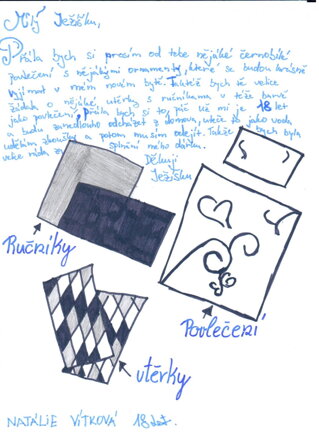 Milý Ježíšku,
Přála bych si prosím od tebe nějáké černobílé
povlečení s nějákými ornamenty, které se budou krásně
vyjímat v mém novém bytě. Taktéž bych tě velice
žádala o nějaké, utěrky s ručníkama v téže barvě
jako povlečení, přála bych si to, již už mi je 18 let
a budu zanedlouho odcházet z domova, uteče to jako voda
udělám zkoušky a potom musím odejít. Takže bych byla
velice ráda za splnění mého dárku.
Děkuji
Ježíšku
Ručníky
Povlečení
utěrky
NATÁLIE VÍTKOVÁ 18 let.